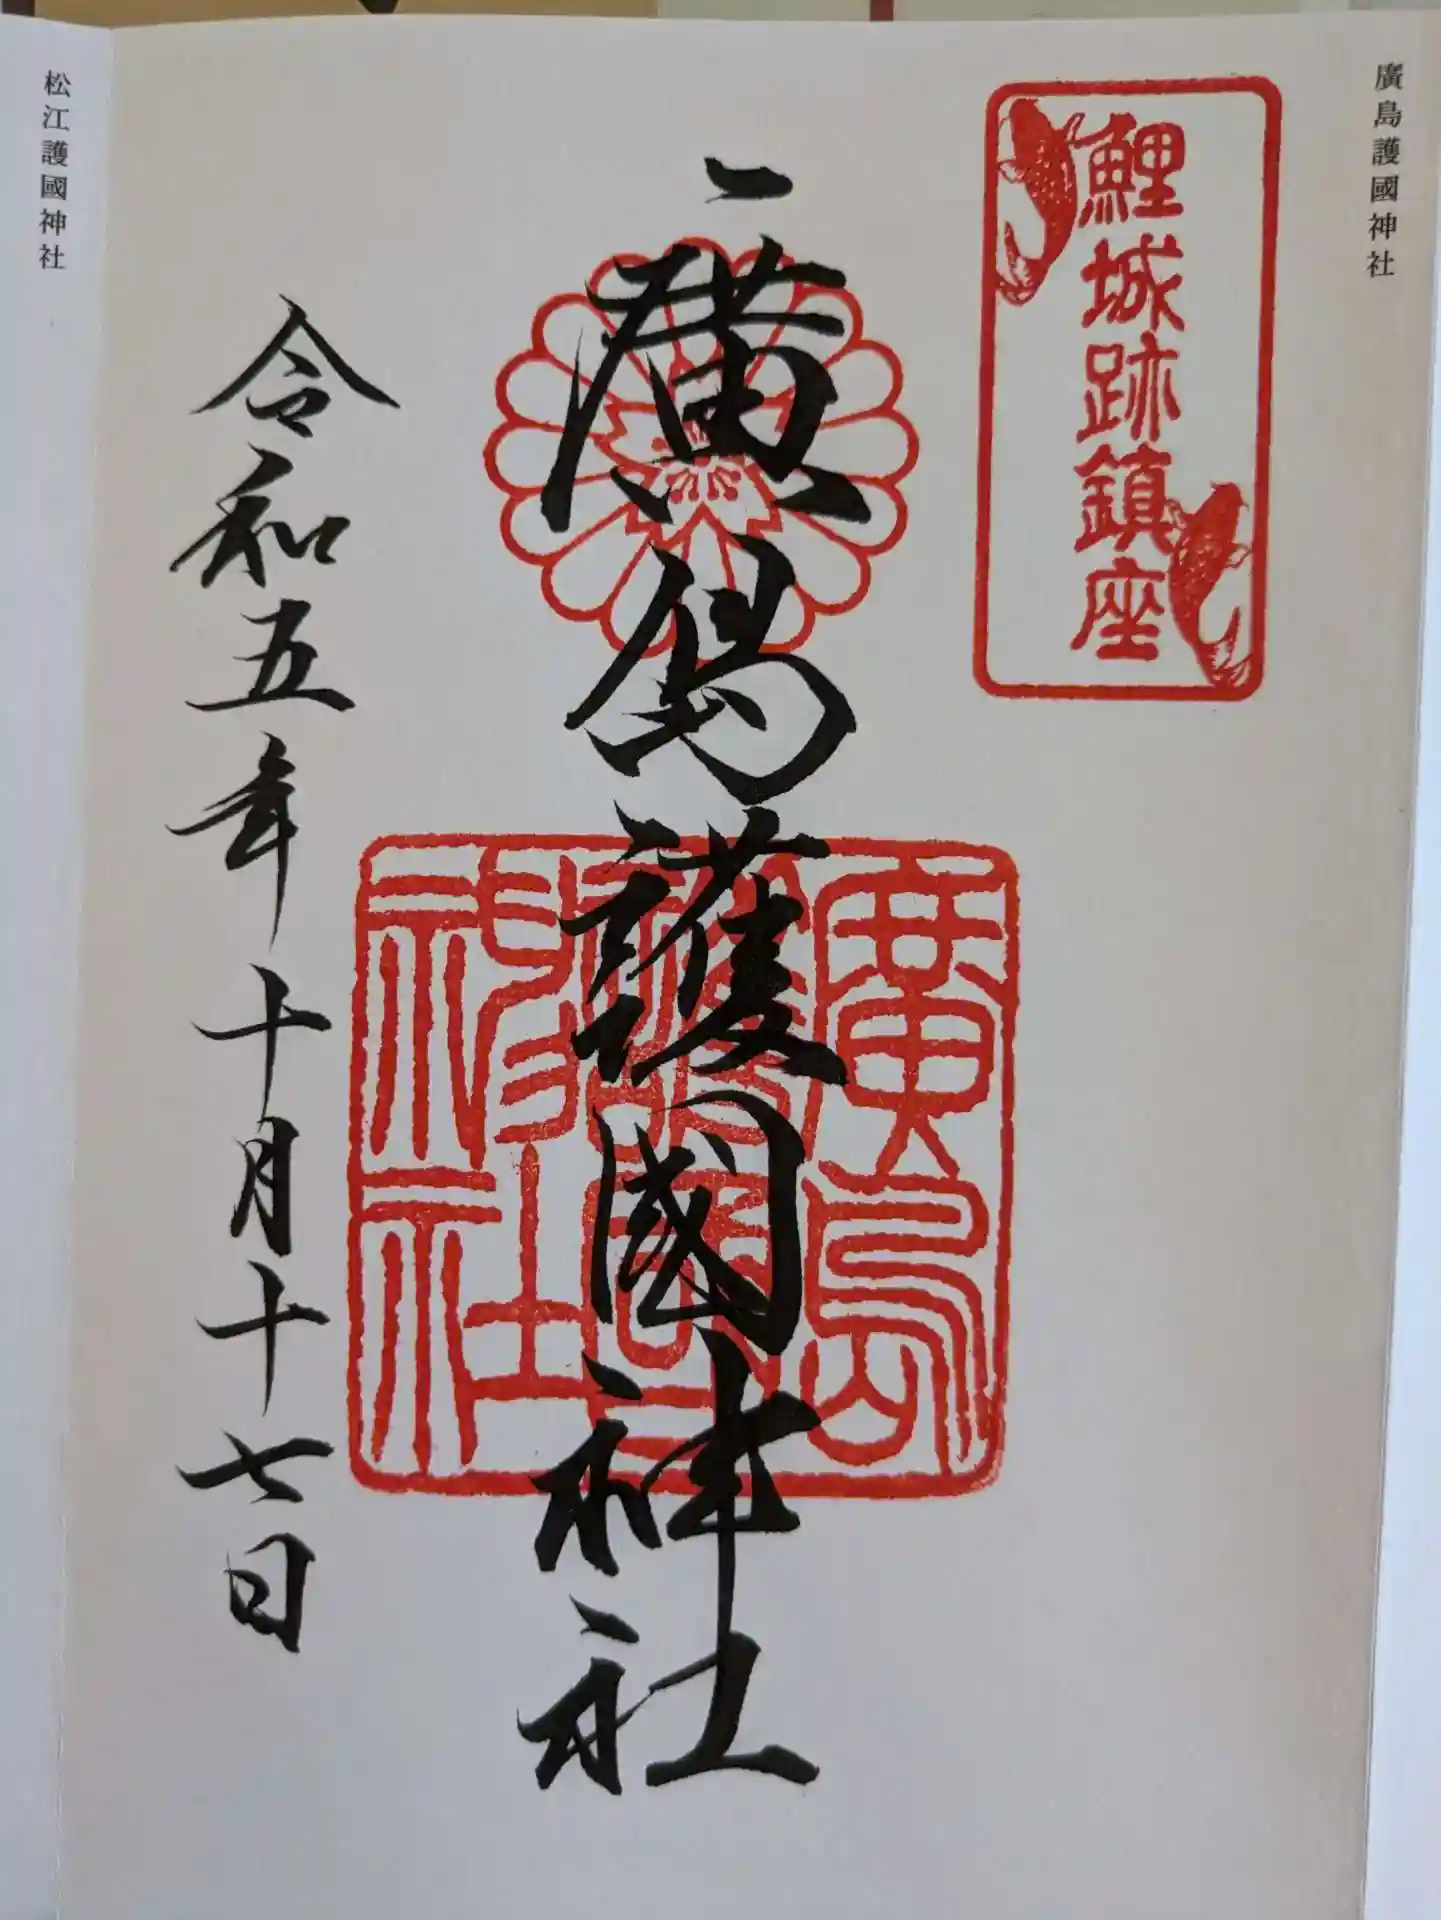 廣島護國神社
鯉城跡鎮座
廣島護國神社
廣島
護國
神社
令和五年十月十七日
松江護國神社